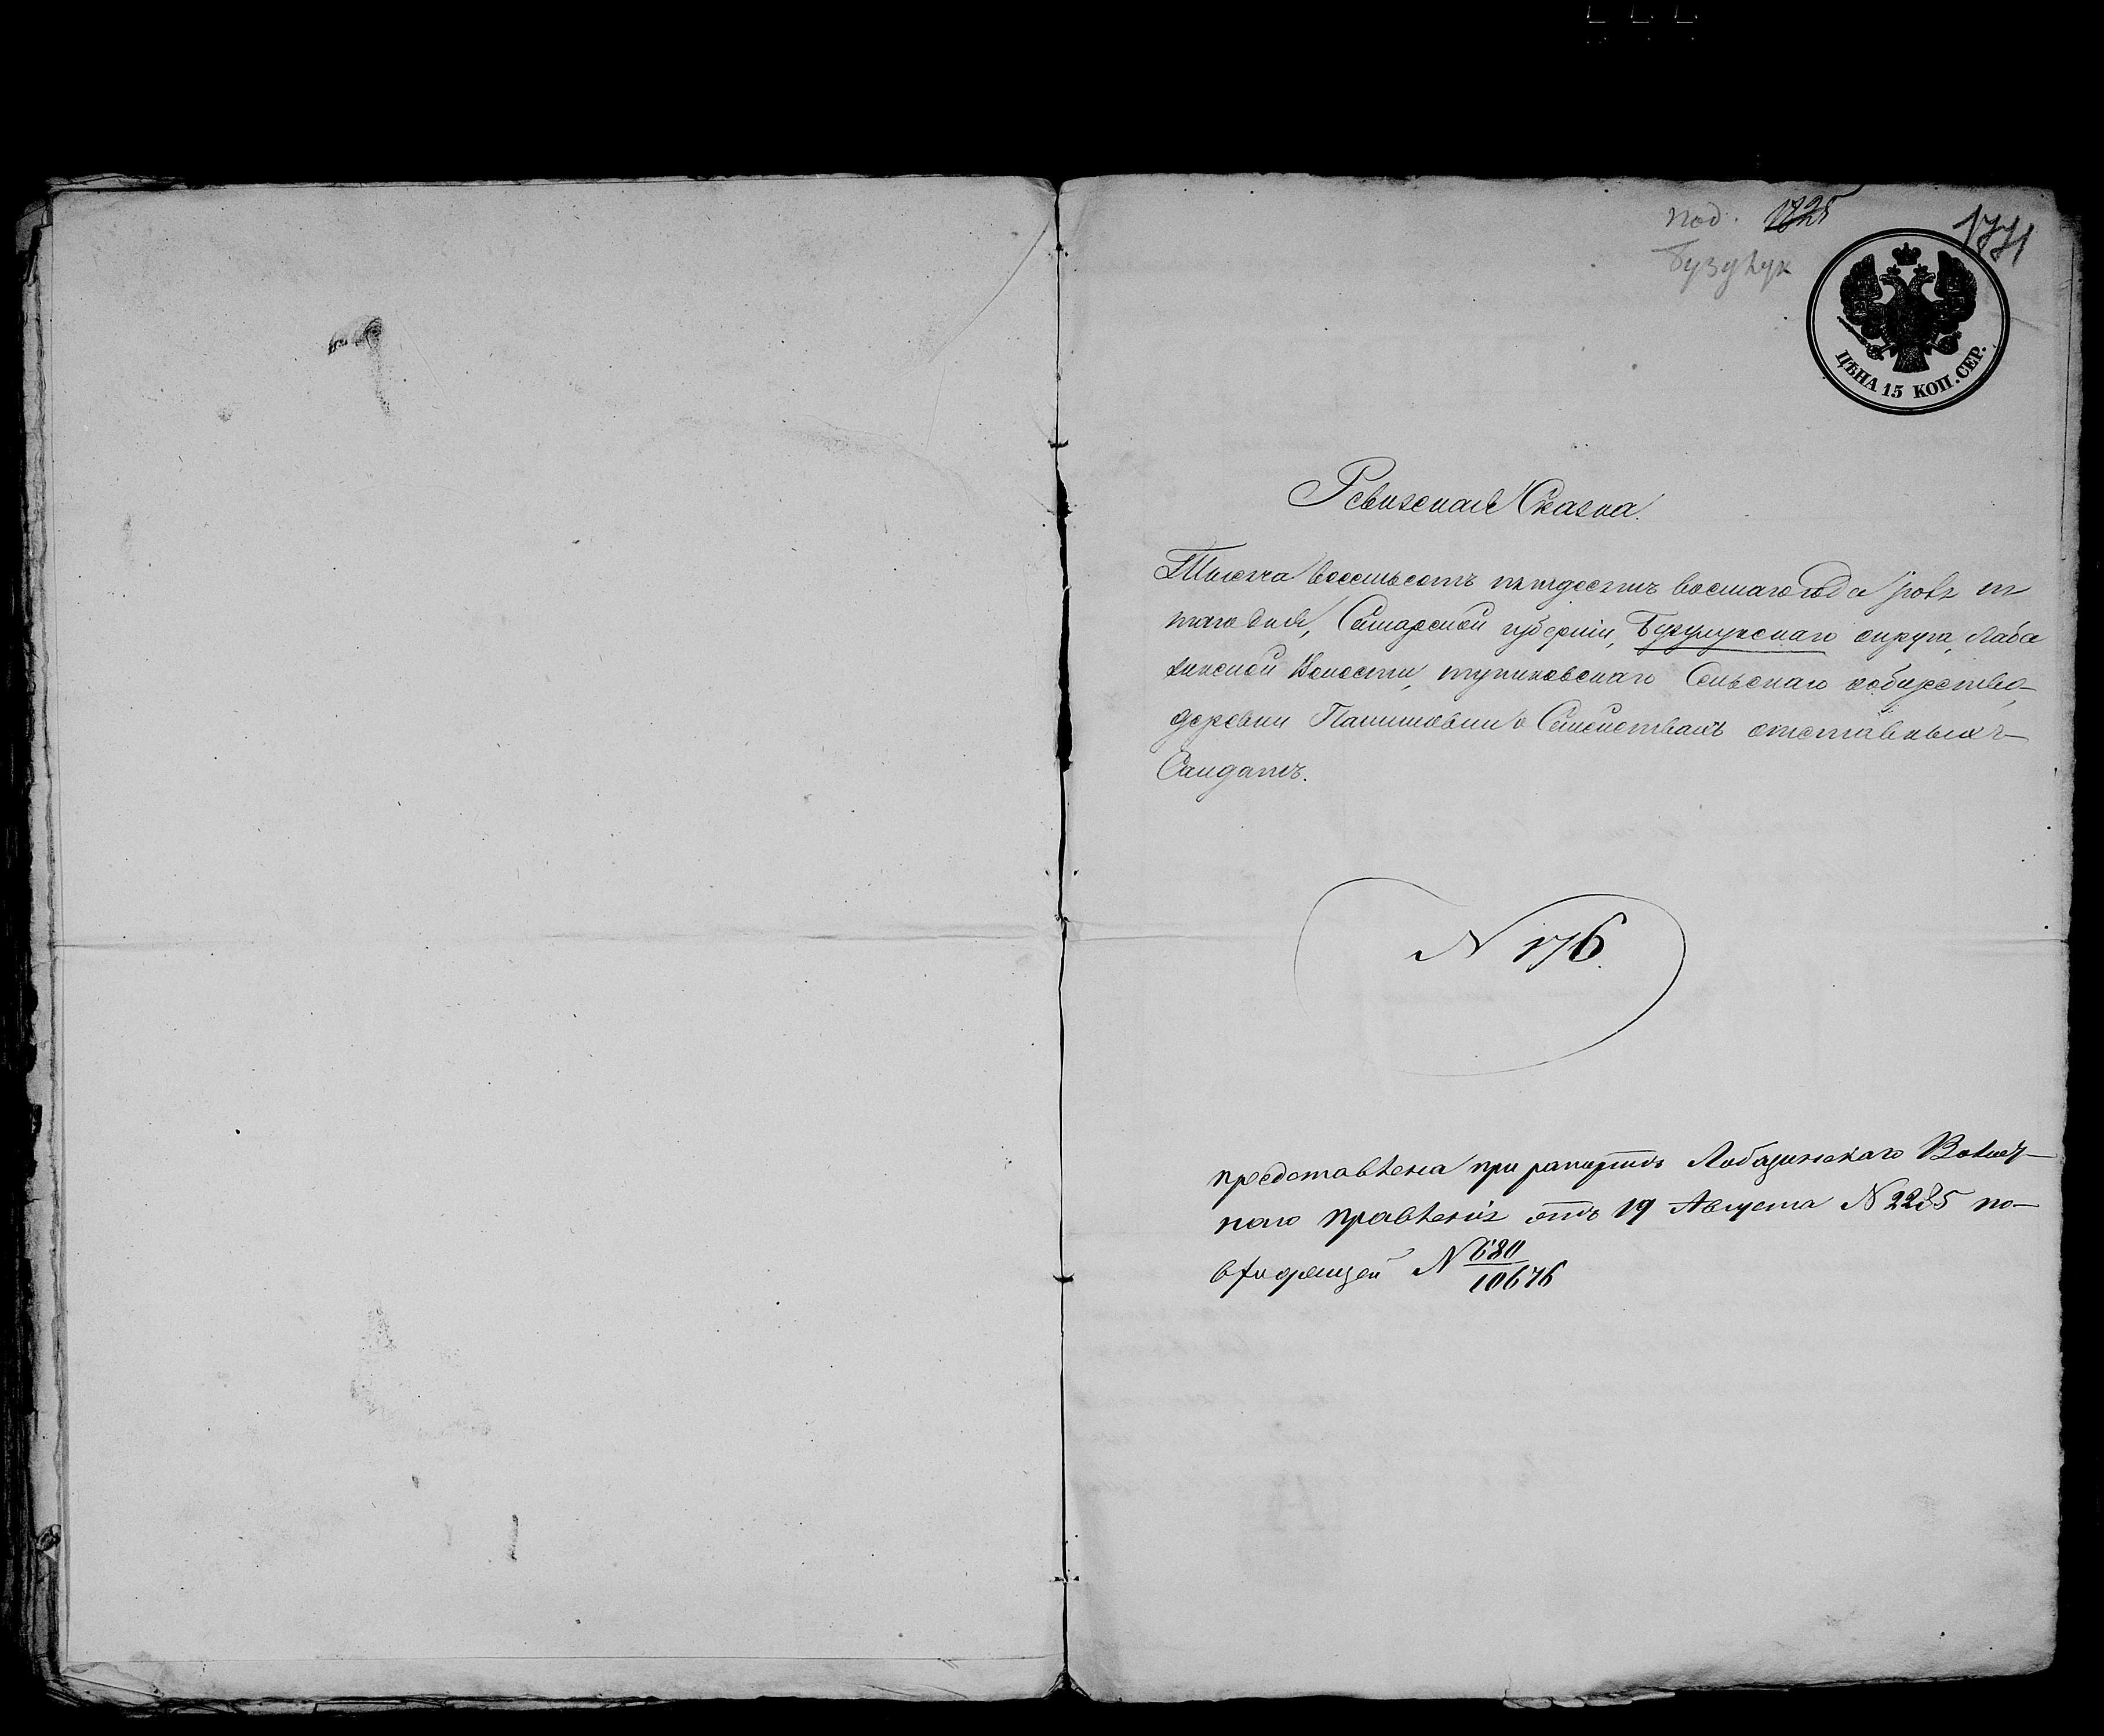 под. 1725
Бузулук
1771
ЦѢНА 15 КОП. СЕР.
Ревизская Сказка.
Тысяча восемьсотъ пятдесятъ восмаго года
таго дня, Самарской губерніи, Бузулукскаго округа, Лаба
зинской Волости, тупиковскаго Сельскаго
деревни о Семействахъ отставныхъ
Салдатъ.
N 176.
представлена при рапортѣ Лобазинскаго Волост
наго правленія отъ 19 Августа N 2285 по
входящей N 680
10676